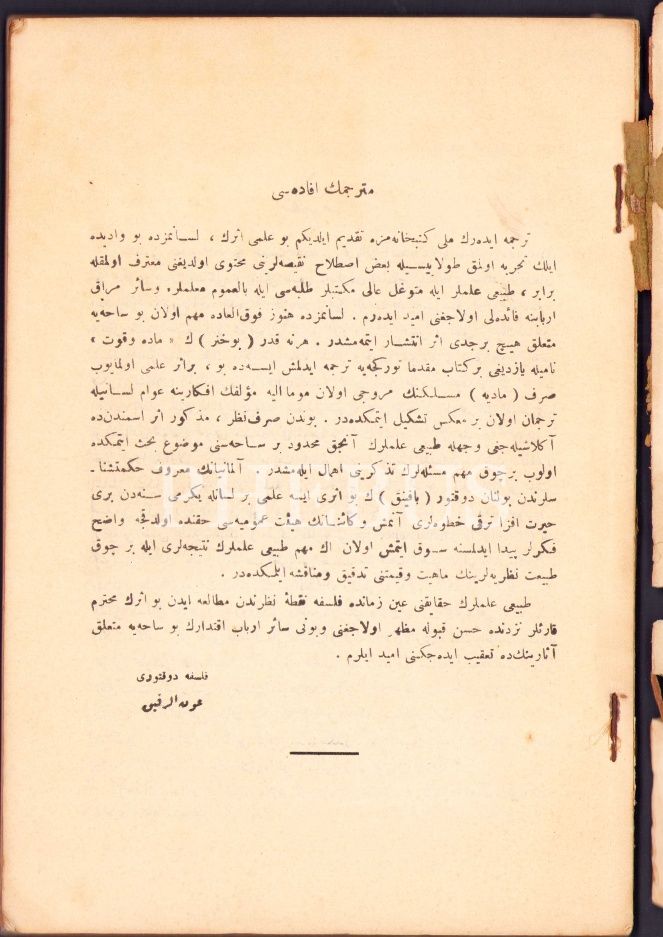 مترجمك افاده‌سی
ترجمه ایده‌رك ملی كتبخانه‌مزه تقدیم ایلدیكم بو علمی اثرك ، لسانمزده بو وادیده
ایلك تجربه اولمق طولاییسیله بعض اصطلاح نقیصه‌لرینی محتوی اولدیغنی معترف اولمقله
برابر ، طبیعی علملر ایله متوغل عالی مكتبلر طلبه‌سی ایله بالعموم معلملره وسائر مراق
اربابنه فائده‌لی اولاجغنی امید ایده‌رم . لسانمزده هنوز فوق‌العاده مهم اولان بو ساحه‌یه
متعلق هیچ بر جدی اثر انتشار ایتمه‌مشدر . هر نه قدر ( بوخنر ) ك « ماده وقوت »
نامیله یازدیغی بر كتاب مقدما توركجه‌یه ترجمه ایدلمش ایسه‌ده بو ، بر اثر علمی اولمایوب
صرف ( مادیه ) مسلكنك مروجی اولان مومالیه مؤلفك افكارینه عوام لسانیله
ترجمان اولان بر معكس تشكیل ایتمكده‌در . بوندن صرف‌نظر ، مذكور اثر اسمندن‌ده
آكلاشیله‌جغی وجهله طبیعی علملرك آنجق محدود بر ساحه‌سنی موضوع بحث ایتمكده
اولوب بر چوق مهم مسئله‌لرك تذكرینی اهمال ایله‌مشدر . آلمانیانك معروف حكمتشنا ـ
سلرندن بولنان دوقتور ( باوینق ) ك بو اثری ایسه علمی بر لسانله یكرمی سنه‌دن بری
حیرت افزا ترقی خطوه‌لری آتمش وكائناتك هیئت عمومیه‌سی حقنده اولدقجه واضح
فكرلر پیدا ایدلمسنه سوق ایتمش اولان اك مهم طبیعی علملرك نتیجه‌لری ایله بر چوق
طبیعت نظریه‌لرینك ماهیت وقیمتنی تدقیق ومناقشه ایلمكده‌در .
طبیعی علملرك حقایقنی عین زمانده فلسفه نقطهٔ نظرندن مطالعه ایدن بو اثرك محترم
قارئلر نزدنده حسن قبوله مظهر اولاجغنی وبونی سائر ارباب اقتدارك بو ساحه‌یه متعلق
آثارینك‌ده تعقیب ایده‌جكنی امید ایلرم .
فلسفه دوقتوری
عون‌الرفیق